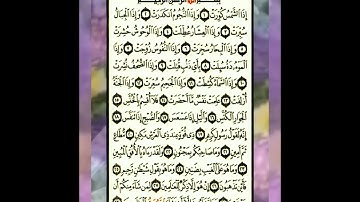 بِسْمِ اللَّهِ الرَّحْمَٰنِ الرَّحِيمِ
إِذَا الشَّمْسُ كُوِّرَتْ ١ وَإِذَا النُّجُومُ انْكَدَرَتْ ٢ وَإِذَا الْجِبَالُ
سُيِّرَتْ ٣ وَإِذَا الْعِشَارُ عُطِّلَتْ ٤ وَإِذَا الْوُحُوشُ حُشِرَتْ
٥ وَإِذَا الْبِحَارُ سُجِّرَتْ ٦ وَإِذَا النُّفُوسُ زُوِّجَتْ ٧ وَإِذَا
الْمَوْءُدَةُ سُئِلَتْ ٨ بِأَيِّ ذَنْبٍ قُتِلَتْ ٩ وَإِذَا الصُّحُفُ نُشِرَتْ
١٠ وَإِذَا السَّمَاءُ كُشِطَتْ ١١ وَإِذَا الْجَحِيمُ سُعِّرَتْ ١٢ وَإِذَا الْجَنَّةُ
أُزْلِفَتْ ١٣ عَلِمَتْ نَفْسٌ مَا أَحْضَرَتْ ١٤ فَلَا أُقْسِمُ بِالْخُنَّسِ ١٥
الْجَوَارِ الْكُنَّسِ ١٦ وَاللَّيْلِ إِذَا عَسْعَسَ ١٧ وَالصُّبْحِ إِذَا تَنَفَّسَ ١٨
إِنَّهُ لَقَوْلُ رَسُولٍ كَرِيمٍ ١٩ ذِي قُوَّةٍ عِنْدَ ذِي الْعَرْشِ مَكِينٍ ٢٠ مُطَاعٍ
ثَمَّ أَمِينٍ ٢١ وَمَا صَاحِبُكُمْ بِمَجْنُونٍ ٢٢ وَلَقَدْ رَآهُ بِالْأُفُقِ الْمُبِينِ
٢٣ وَمَا هُوَ عَلَى الْغَيْبِ بِضَنِينٍ ٢٤ وَمَا هُوَ بِقَوْلِ شَيْطَٰنٍ رَجِيمٍ ٢٥
فَأَيْنَ تَذْهَبُونَ ٢٦ إِنْ هُوَ إِلَّا ذِكْرٌ لِلْعَٰلَمِينَ ٢٧ لِمَنْ شَاءَ مِنْكُمْ أَنْ